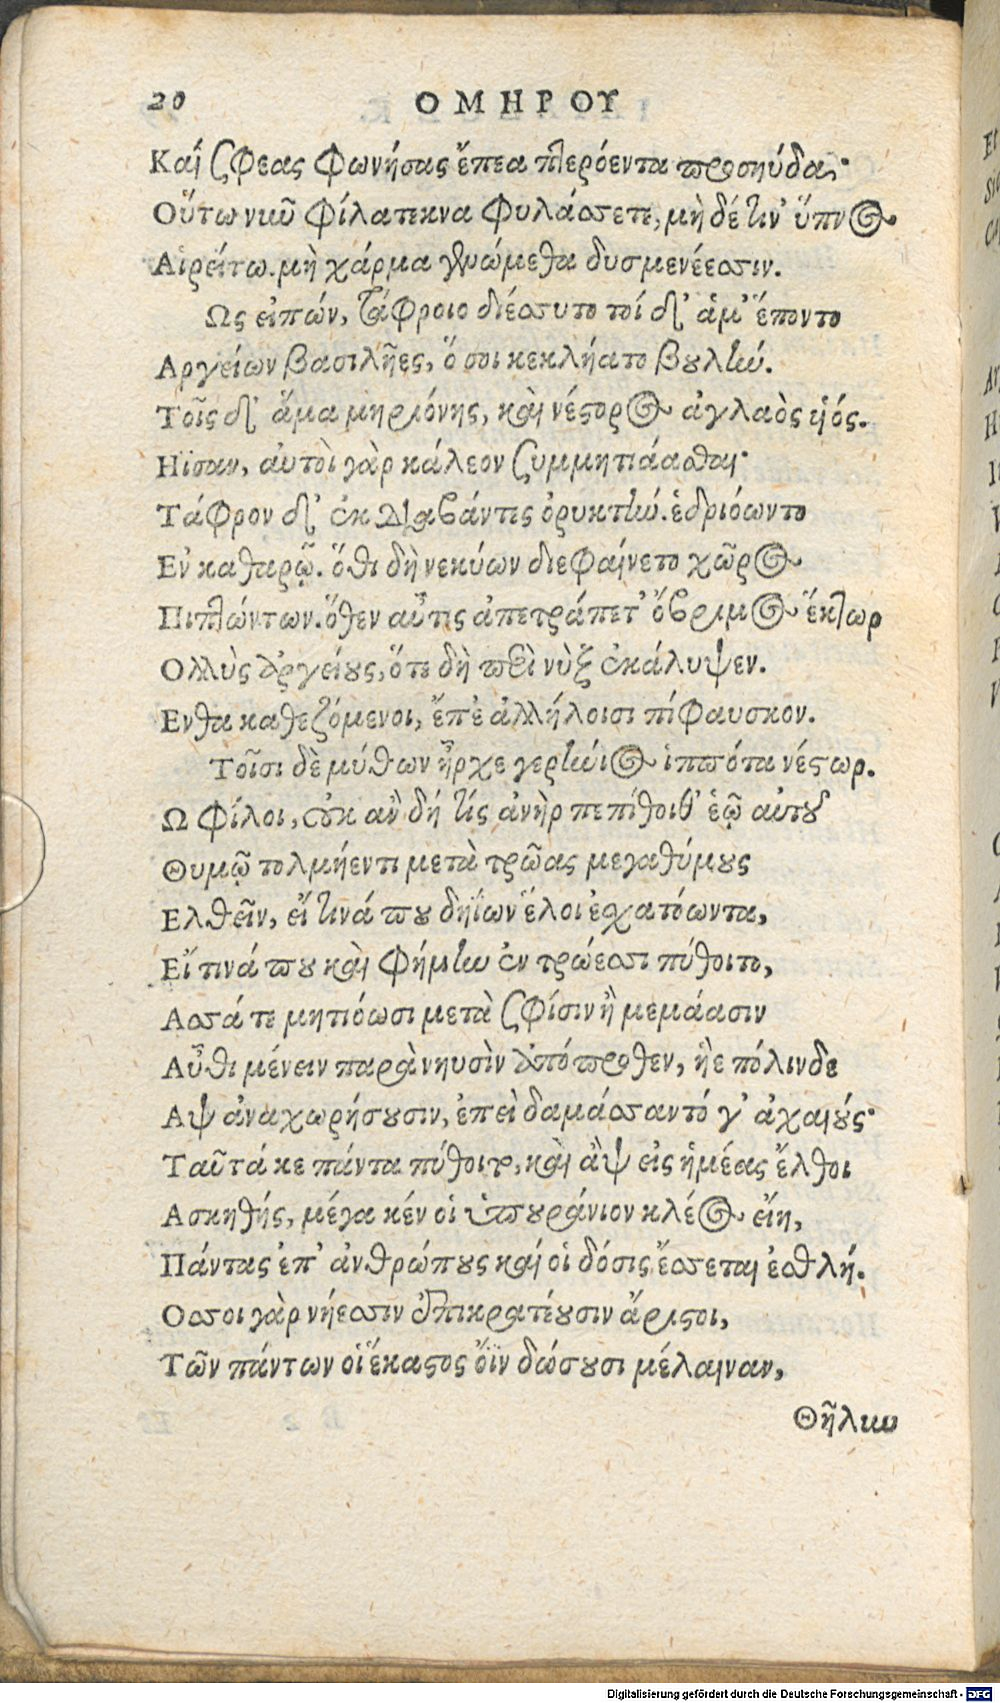 20 ΟΜΗΡΟΥ
Καί σφεας φωνήσας ἔπεα πτερόεντα προσηύδα·
Οὕτω νῦν φίλα τεκνα φυλάσσετε, μὴ δέ τιν' ὕπνος
Αἱρείτω. μὴ χάρμα γενώμεθα δυσμενέεσσιν.
Ως εἰπών, τάφροιο διέσσυτο τοί δ' ἁμ' ἕποντο
Αργείων βασιλῆες, ὅσοι κεκλήατο βουλήν.
Τοῖς δ' ἅμα μηριόνης, καὶ νέστορος ἀγλαὸς ὑιός.
Ηϊσαν, ἀυτοὶ γὰρ κάλεον συμμητιάασθαι·
Τάφρον δ' ἐκ διαβάντες ὀρυκτήν. ἑδριόωντο
Εν καθαρῷ. ὅθι δὴ νεκύων διεφαίνετο χῶρος
Πιπτώντων. ὅθεν αὖτις ἀπετράπετ' ὄβριμος ἕκτωρ
Ολλὺς ἀργείους, ὅτε δὴ περὶ νὺξ ἐκάλυψεν.
Ενθα καθεζόμενοι, ἔπε' ἀλλήλοισι πίφαυσκον.
Τοῖσι δὲ μύθων ἦρχε γερήνιος ἱππότα νέστωρ.
Ω φίλοι, οὐκ ἂν δή τίς ἀνὴρ πεπίθοιθ' ἑῷ αὐτοῦ
Θυμῷ τολμήεντι μετὰ τρῶας μεγαθύμους
Ελθεῖν, εἴ τινά που δηΐων ἕλοι ἐσχατόωντα,
Εἴ τινά που καὶ φήμην ἐν τρώεσσι πύθοιτο,
Ασσά τε μητιόωσι μετὰ σφίσιν ἢ μεμάασιν
Αὖθι μένειν παρὰ νηυσὶν ἀπόπροθεν, ἠὲ πόλινδε
Αψ ἀναχωρήσουσιν, ἐπεὶ δαμάσσαντό γ' ἀχαιούς·
Ταῦτά κε πάντα πύθοιτο, καὶ ἂψ εἰς ἡμέας ἔλθοι
Ασκηθής, μέγα κέν οἱ ὑπουράνιον κλέος εἴη,
Πάντας ἐπ' ἀνθρώπους καί οἱ δόσις ἔσσεται ἐσθλή.
Οσσοι γὰρ νήεσσιν ἐπικρατέουσιν ἄριστοι,
Τῶν πάντων οἱ ἕκαστος ὄϊν δώσουσι μέλαιναν,
Θῆλυν
Digitalisierung gefördert durch die Deutsche Forschungsgemeinschaft - DFG